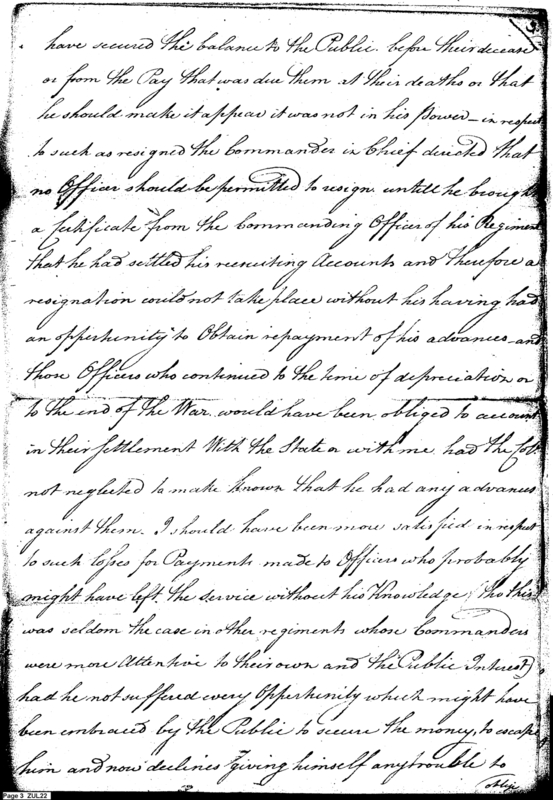 3
have secured the balance to the Public before their decease
or from the Pay that was due them at their deaths or that
he should make it appear it was not in his Power – in respect
to such as resigned the Commander in Chief directed that
no Officer should be permitted to resign untill he brought
a Certificate from the Commanding Officer of his Regiment
that he had settled his recruiting Accounts and therefore a
resignation could not take place without his having had
an oppertunity to Obtain repayment of his advances – and
those Officers who continued to the time of depreciation or
to the end of the War would have been obliged to account
in their settlement With the State or with me, had the Colo.
not neglected to make known that he had any advances
against them. I should have been more satisfied in respect
to such losses for Payments made to Officers who probably
might have left the service without his Knowledge (tho this
was seldom the case in other regiments whose Commanders
were more Attentive to their own and the Public Interest)
had he not suffered every Oppertunity which might have
been embraced by the Public to secure the money, to escape
him and now declines giving himself any trouble to
Page 3 ZUL22